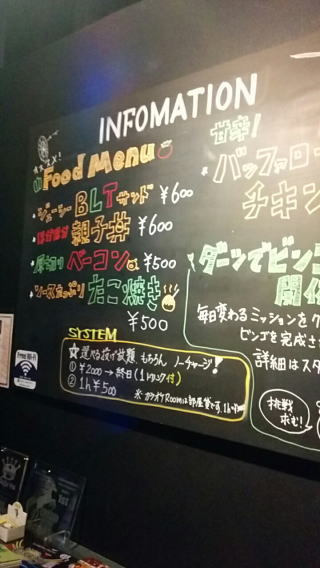 INFOMATION
オススメ!
Food Menu
ジューシー BLTサンド ¥600
ほかほか 親子丼 ¥600
厚切り ベーコン ¥500
ソースたっぷり たこ焼き
¥500
SYSTEM
☆選べる投げ放題 もちろん ノーチャージ!
① ¥2000 → 終日(1ドリンク付)
② 1h ¥500
※カラオケRoomは部屋貸です。1h
Free Wi-Fi
甘辛!
バッファロー
チキン
ダーツでビンゴ
開催
毎日変わるミッションをク
ビンゴを完成さ
詳細はスタ
挑戦
求む!